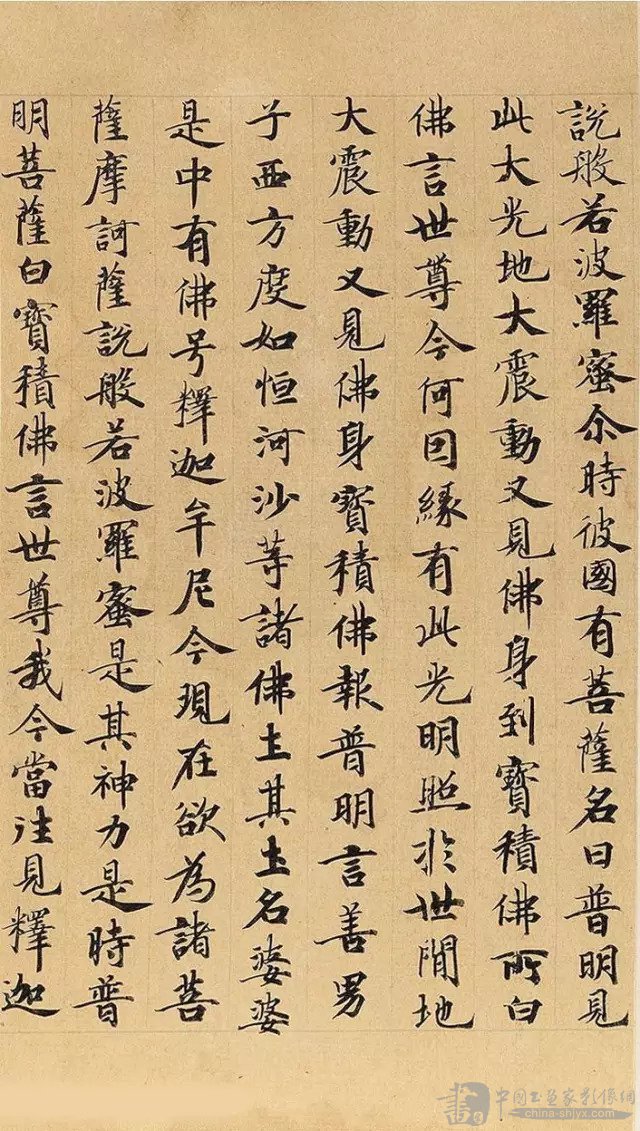 說般若波羅蜜尒時彼國有菩薩名曰普明見
此大光地大震動又見佛身到寶積佛所白
佛言世尊今何因緣有此光明照於世間地
大震動又見佛身寶積佛報普明言善男
子西方度如恒河沙等諸佛土其土名娑婆
是中有佛号釋迦牟尼今現在欲為諸菩
薩摩訶薩說般若波羅蜜是其神力是時普
明菩薩白寶積佛言世尊我今當往見釋迦
中国书画家影像網
china-shjyx.com